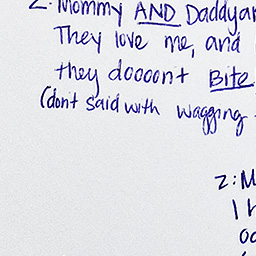 2. Mommy AND Daddy
They love me, and
they doooont Bite
(don't said with wagging
2: M
I